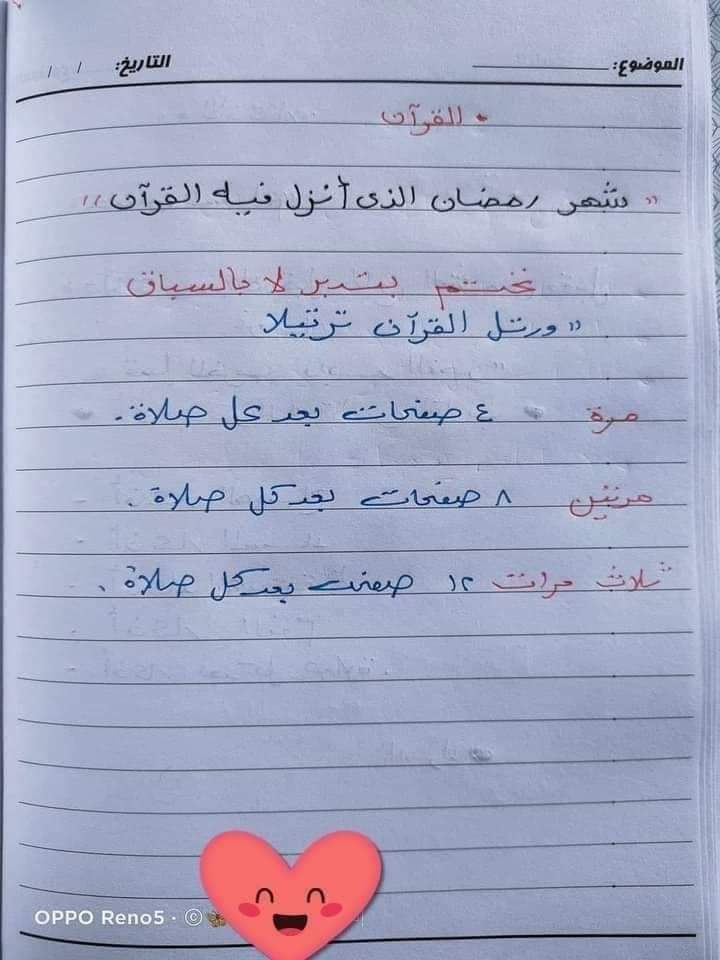 الموضوع: التاريخ: / /
• القرآن
" شهر رمضان الذى أنزل فيه القرآن "
نختم بتدبر لا بالسباق
" ورتل القرآن ترتيلا
مرة ٤ صفحات بعد كل صلاة .
مرتين ٨ صفحات بعد كل صلاة .
ثلاث مرات ١٢ صفحت بعد كل صلاة .
OPPO Reno5 · ©